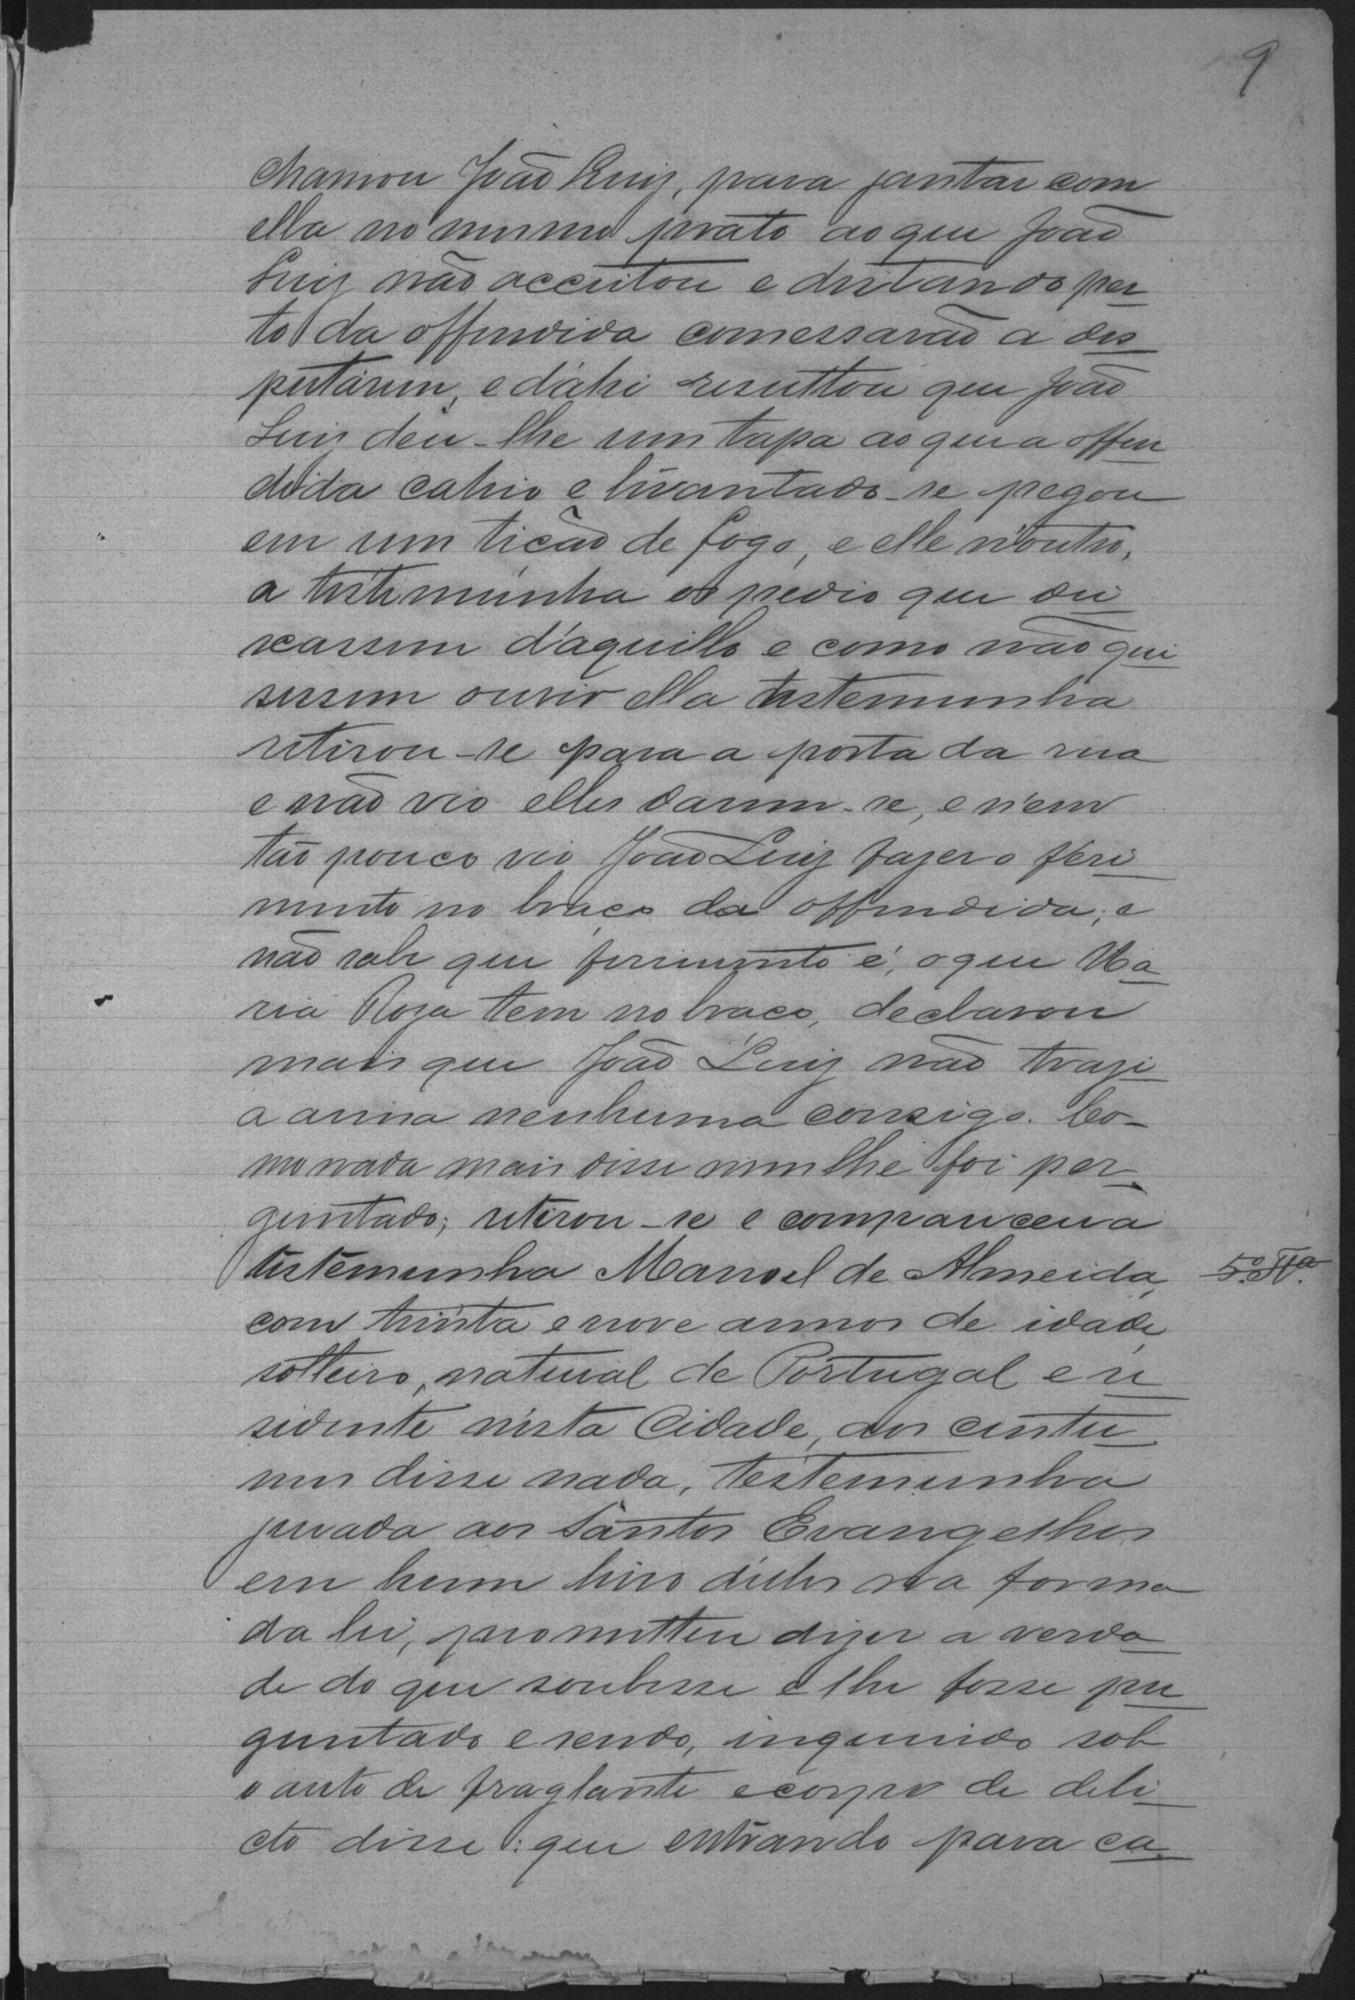 9
chamou João Luiz, para jantar com
ella no mesmo prato ao que João
Luiz não acceitou e deitando per
to da offendida comessarão a des
peitarem, e d'ahi resultou que João
Luiz deu-lhe um tapa ao que a offen
dida cahio e levantado-se pegou
em um ticão de fogo, e elle n'outro,
a testemunha os pedio que dei
xassem d'aquillo e como não qui
sessem ouvir ella testemunha
retirou-se para a porta da rua
e não vio elles darem-se, e nem
tão pouco vio João Luiz fazer o feri
mento no braço da offendida; e
não sabe que ferimento é, o que Ma
ria Roza tem no braco, declarou
mais que João Luiz não trazi
a arma nenhuma consigo. Co-
mo nada mais disse nem lhe foi per
guntado; retirou-se e compareceu a
testemunha Manoel de Almeida, 5ª Tª
com trinta e nove annos de idade,
solteiro, natural de Portugal e re
sidente nesta Cidade, aos custu
mes disse nada, testemunha
jurada aos Santos Evangelhos
em hum livro delles na forma
da lei, prometteu dizer a verda
de do que soubesse e lhe fosse pre
guntado e sendo, inquerido sob
o auto de fraglante e corpo de deli
cto disse: que entrando para ca